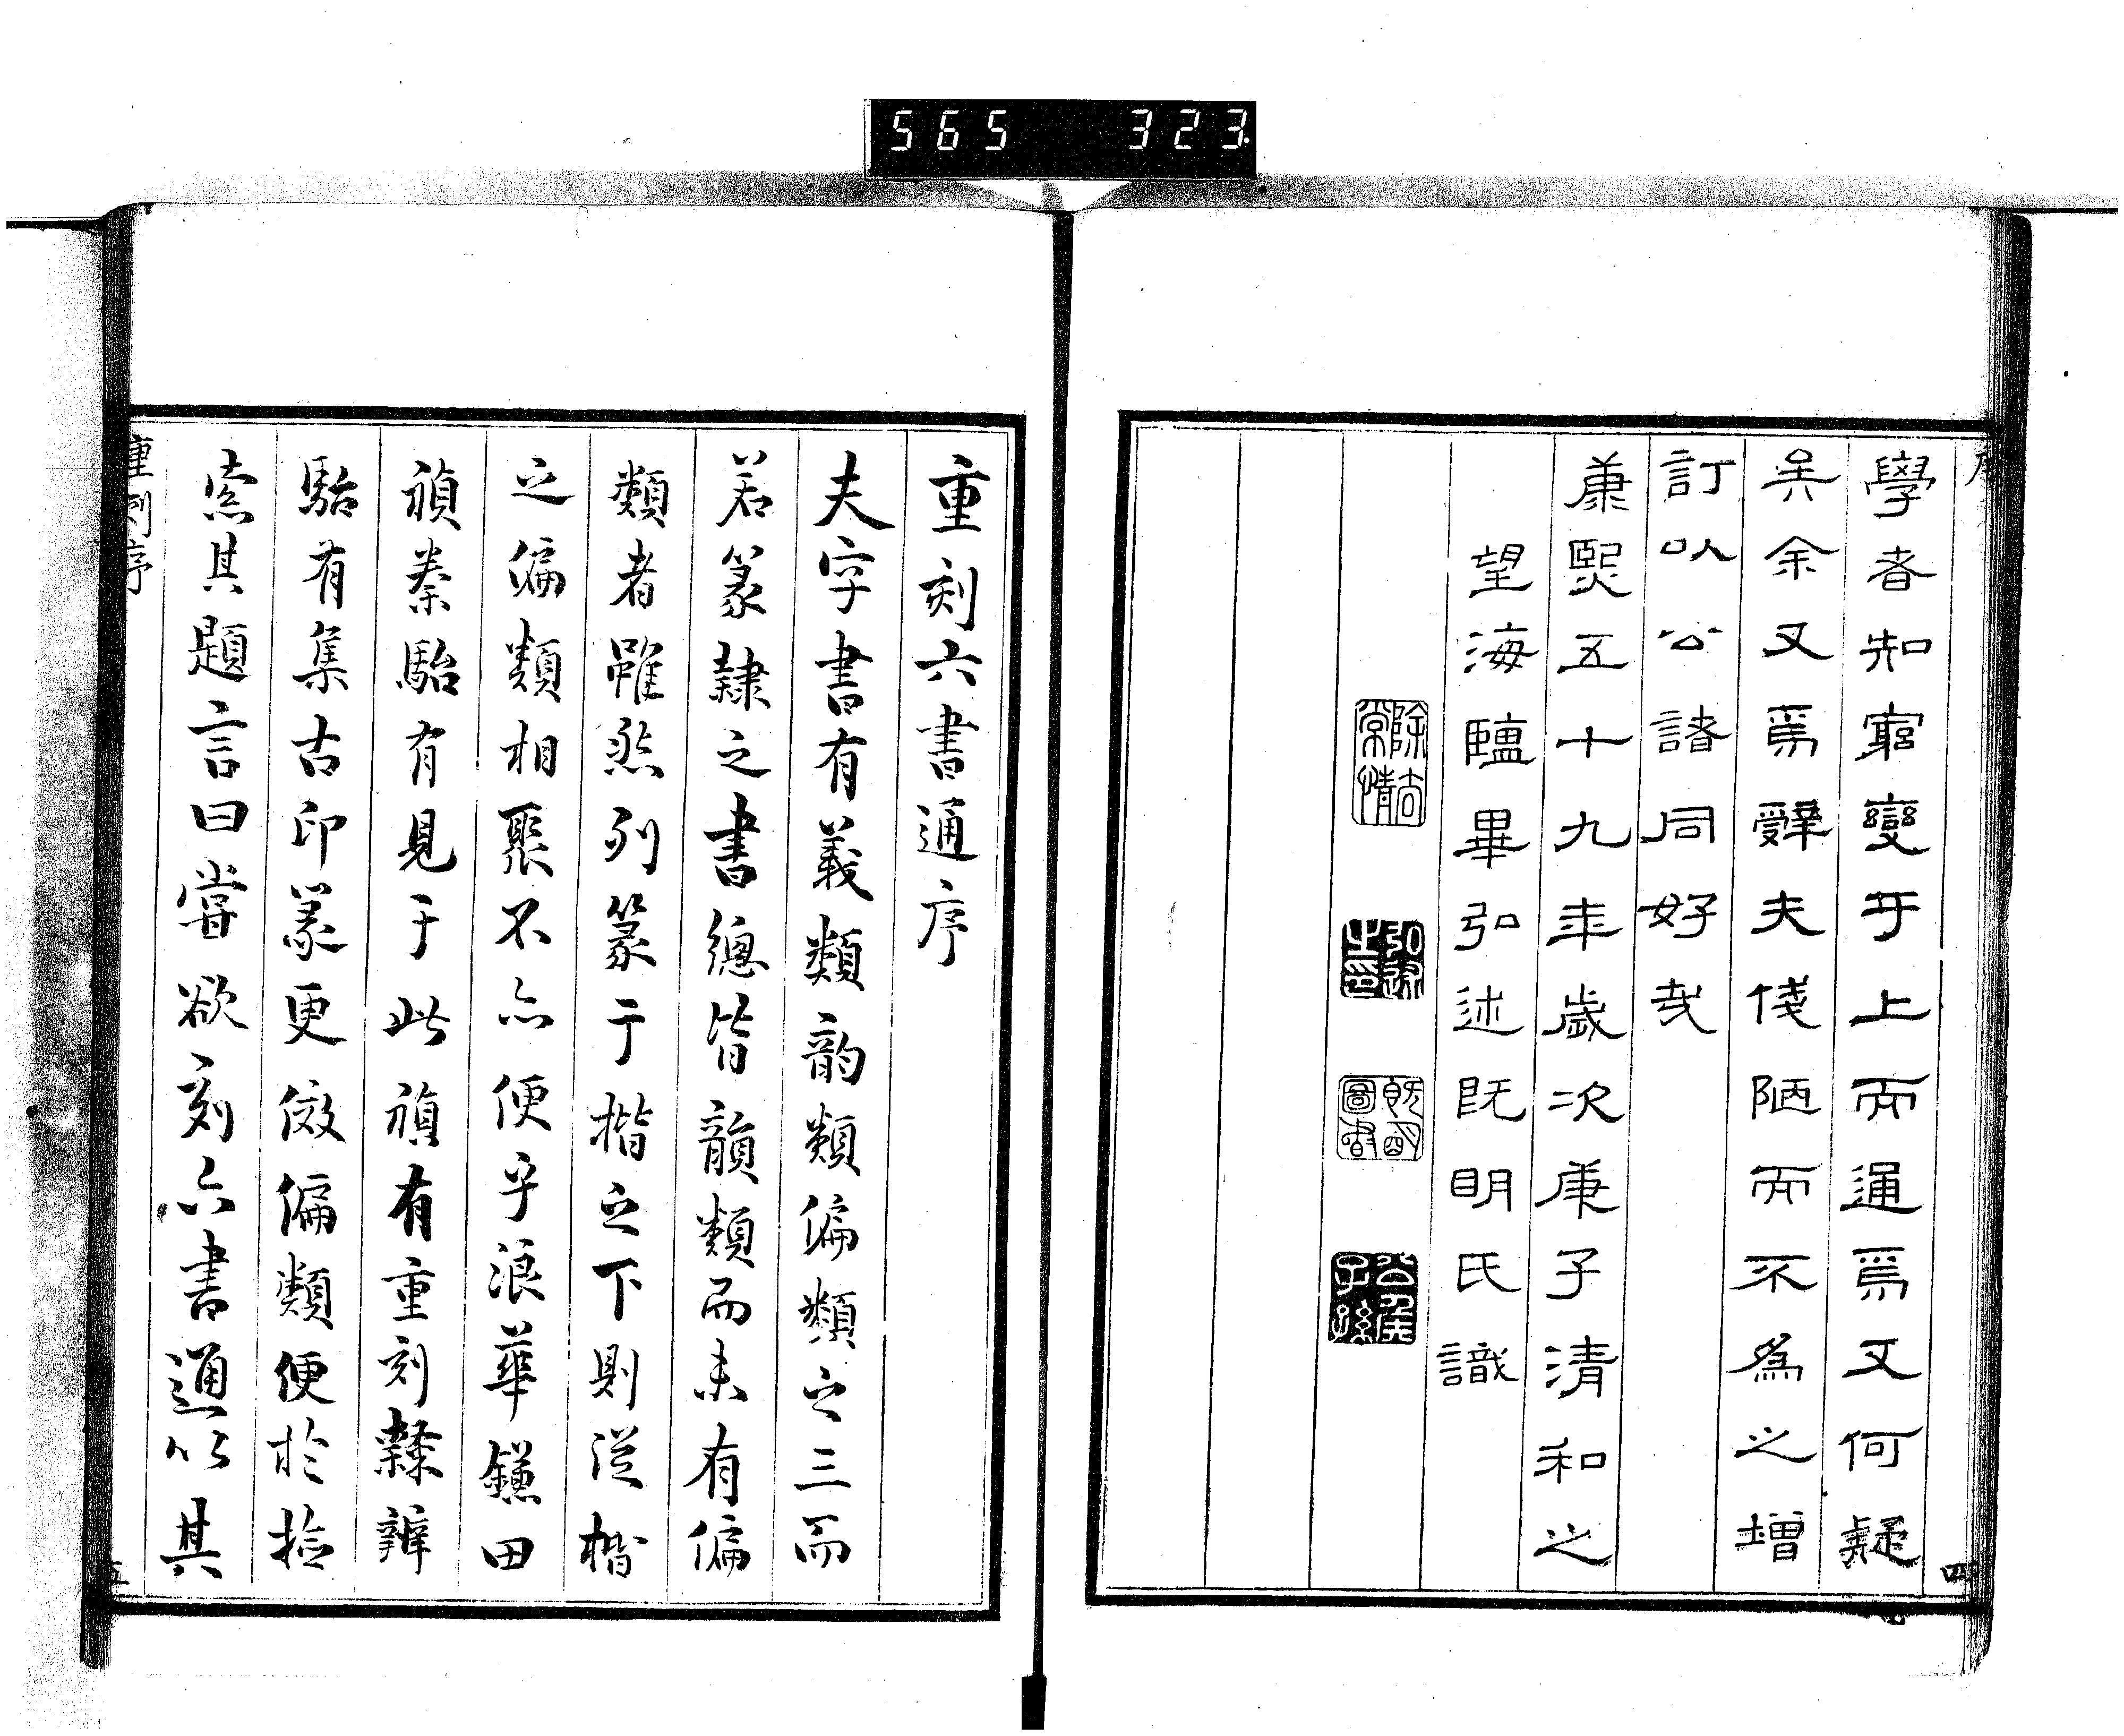 565 323
序
學者知窮變乎上而通焉又何疑
矣余又焉辭夫倿陋而不為之增
訂以公諸同好㢤
康熙五十九年歲次庚子清和之
望海鹽畢弘述既明氏識
除去常情
弘述之印
既明圖書
公
子孫
四
重刻六書通序
夫字書有義類韵類偏類之三而
若篆隷之書總皆韻類而未有偏
類者雖然列篆于楷之下則從楷
之偏類相聚不亦便乎浪華鎌田
禎秦駘有見于此禎有重刻隸辨
駘有集古印篆更倣偏類便於撿
索其題言曰嘗欲刻六書通以其
重刻序
五